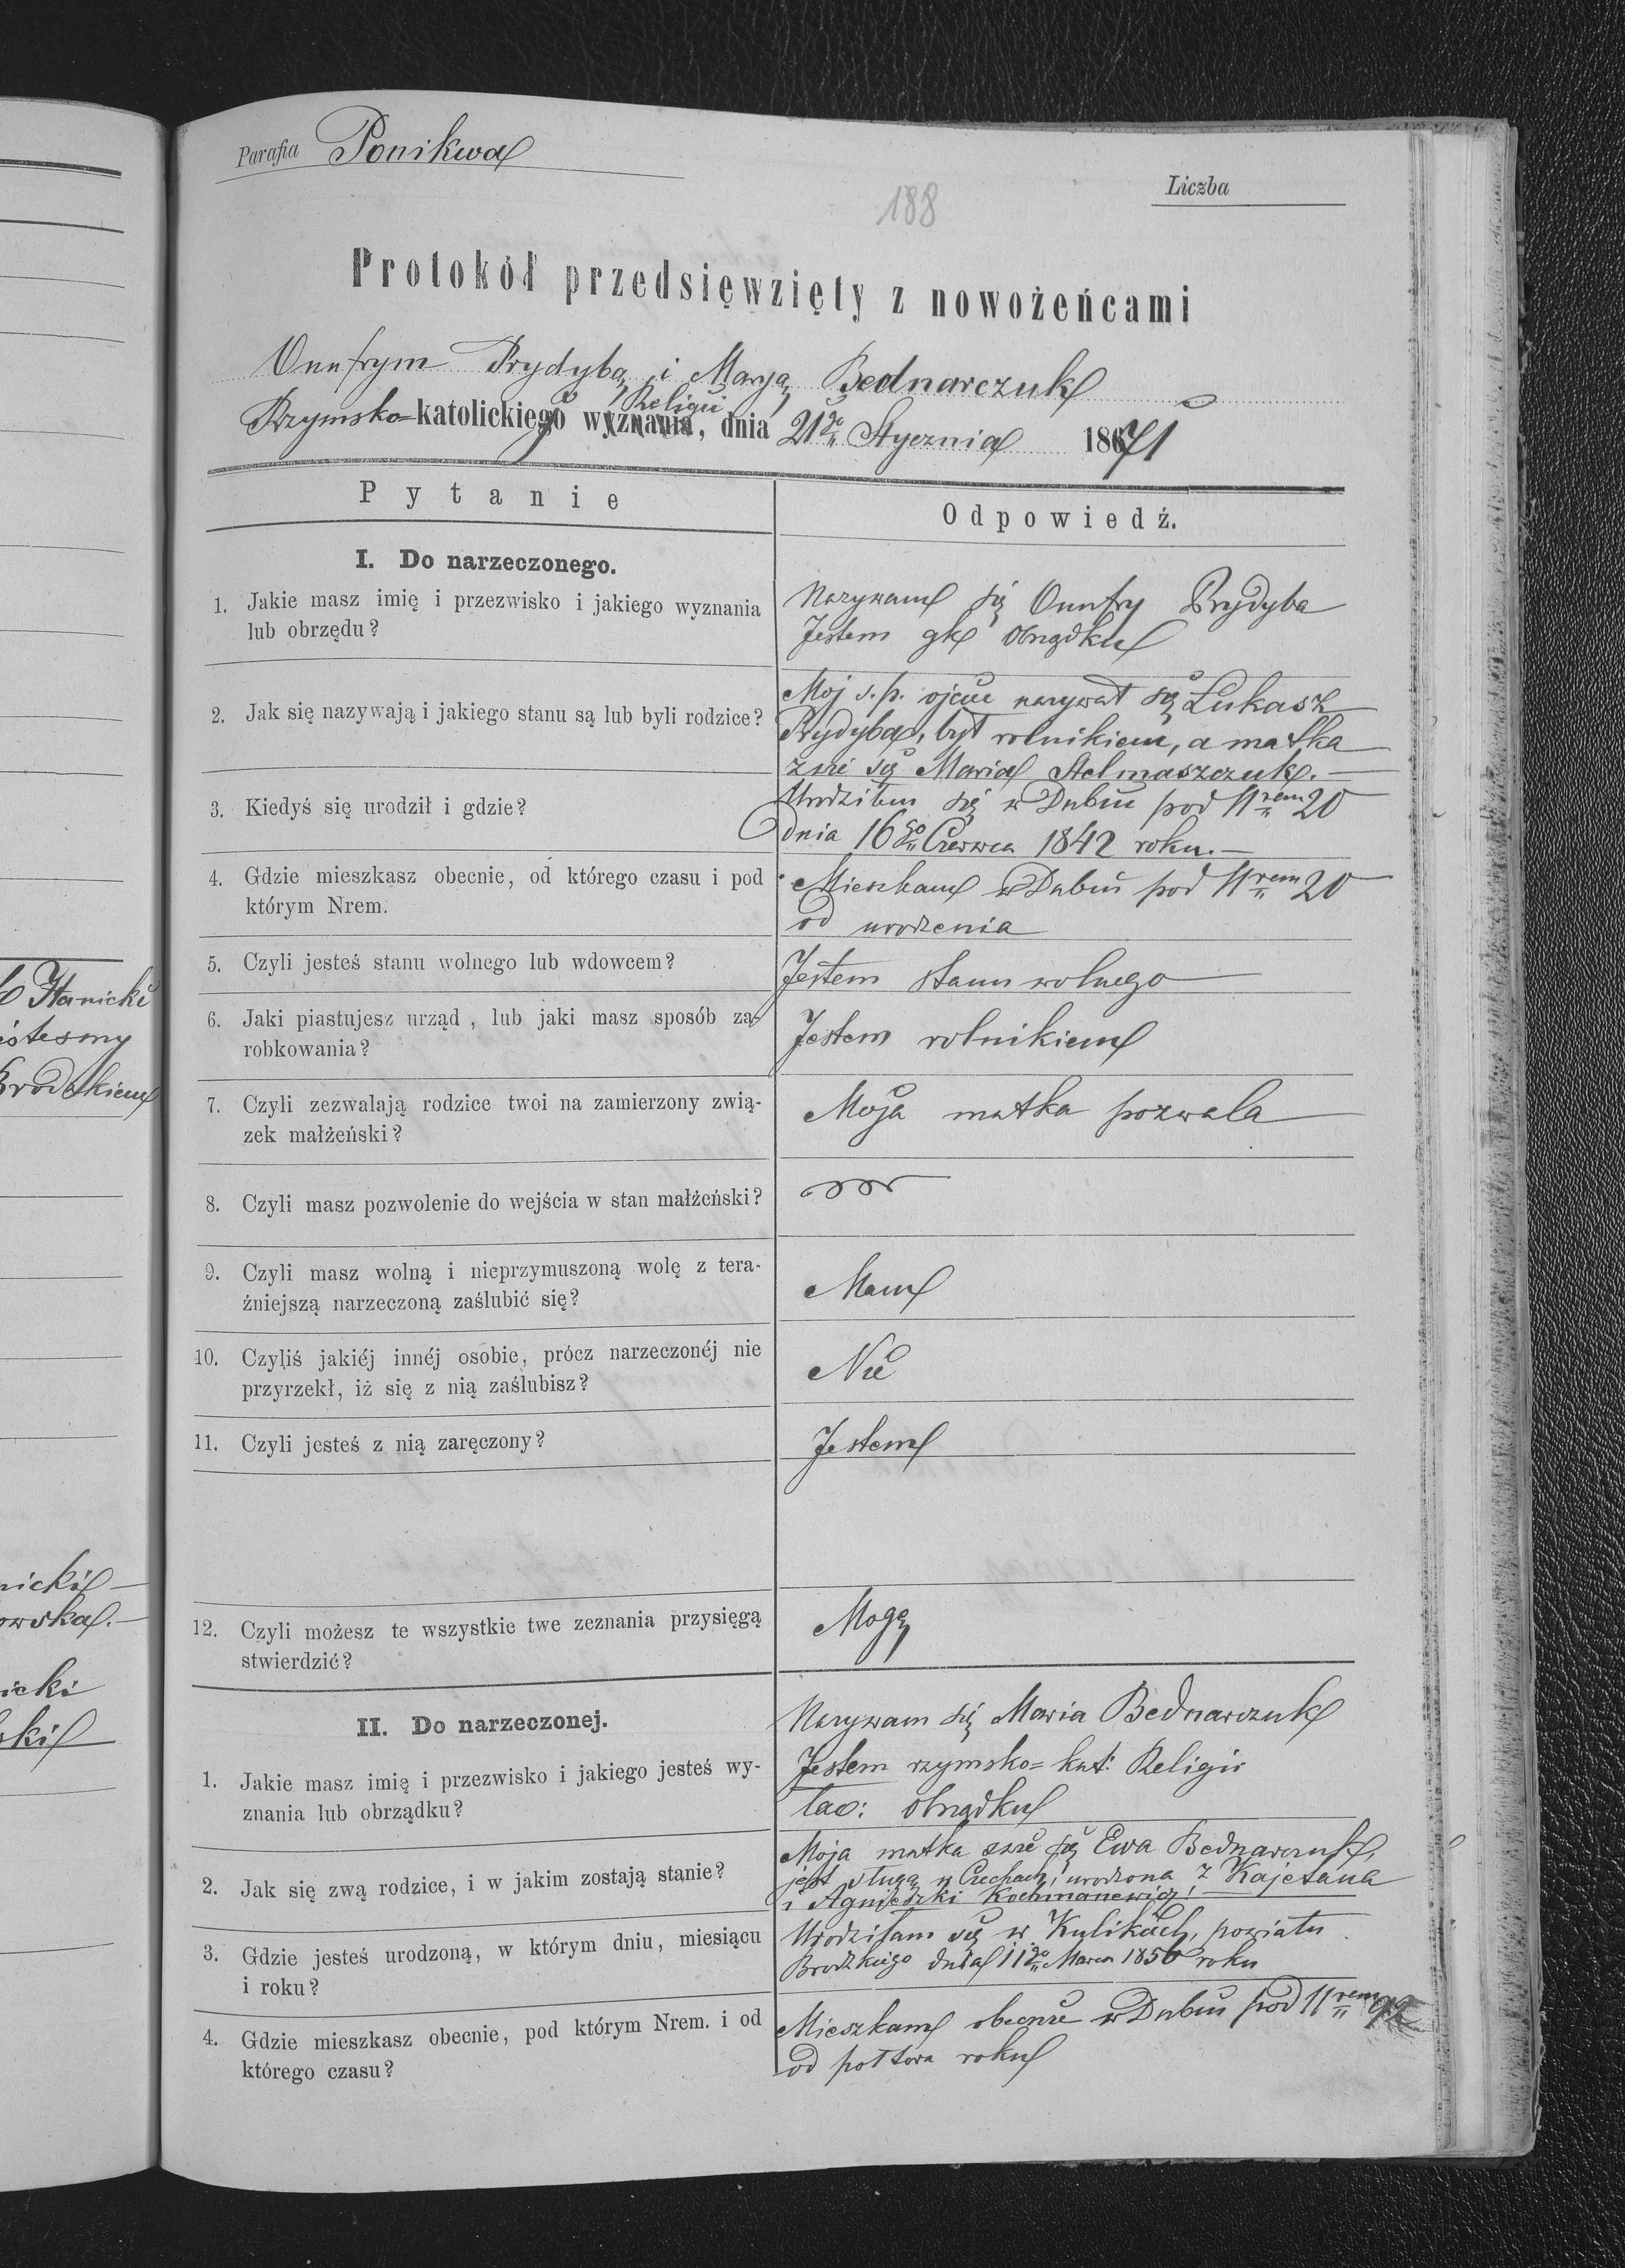 Parafia Ponikwa
Liczba
188
Protokół przedsięwzięty z nowożeńcami
Onufrym Prydybą i Maryą Bednarczuk
Religii
Rzymsko-katolickiego wyznania, dnia 21go Stycznia 1871
Pytanie
Odpowiedź.
I. Do narzeczonego.
1. Jakie masz imię i przezwisko i jakiego wyznania
lub obrzędu?
Nazywam się Onufry Prydyba
Jestem gk obrządku
2. Jak się nazywają i jakiego stanu są lub byli rodzice?
Moj s.p. ojciec nazywał się Łukasz
Prydyba, był rolnikiem, a matka
zwie się Maria Stelmaszczuk.
3. Kiedyś się urodził i gdzie?
Urodziłem się w Dubiu pod Nrem 20
dnia 16go Czerwca 1842 roku.
4. Gdzie mieszkasz obecnie, od którego czasu i pod
którym Nrem.
Mieszkam w Dubiu pod Nrem 20
od urodzenia
5. Czyli jesteś stanu wolnego lub wdowcem?
Jestem stanu wolnego
6. Jaki piastujesz urząd, lub jaki masz sposób za-
robkowania?
Jestem rolnikiem
7. Czyli zezwalają rodzice twoi na zamierzony zwią-
zek małżeński?
Moja matka pozwala
8. Czyli masz pozwolenie do wejścia w stan małżeński?
9. Czyli masz wolną i nieprzymuszoną wolę z tera-
źniejszą narzeczoną zaślubić się?
Mam
10. Czyliś jakiéj innéj osobie, prócz narzeczonéj nie
przyrzekł, iż się z nią zaślubisz?
Nie
11. Czyli jesteś z nią zaręczony?
Jestem
12. Czyli możesz te wszystkie twe zeznania przysięgą
stwierdzić?
Mogę
II. Do narzeczonej.
1. Jakie masz imię i przezwisko i jakiego jesteś wy-
znania lub obrządku?
Nazywam się Maria Bednarczuk
Jestem rzymsko=kat: Religii
łac: obrządku
2. Jak się zwą rodzice, i w jakim zostają stanie?
Moja matka zwie się Ewa Bednarczuk,
jest sługą w Czechach, urodzona z Kajetana
i Agnieszki Kochmanewicz
3. Gdzie jesteś urodzoną, w którym dniu, miesiącu
i roku?
Urodziłam się w Kulikach, powiatu
Brodzkiego dnia 11go Marca 1850 roku
4. Gdzie mieszkasz obecnie, pod którym Nrem. i od
którego czasu?
Mieszkam obecnie w Dubiu pod Nrem 92
od półtora roku